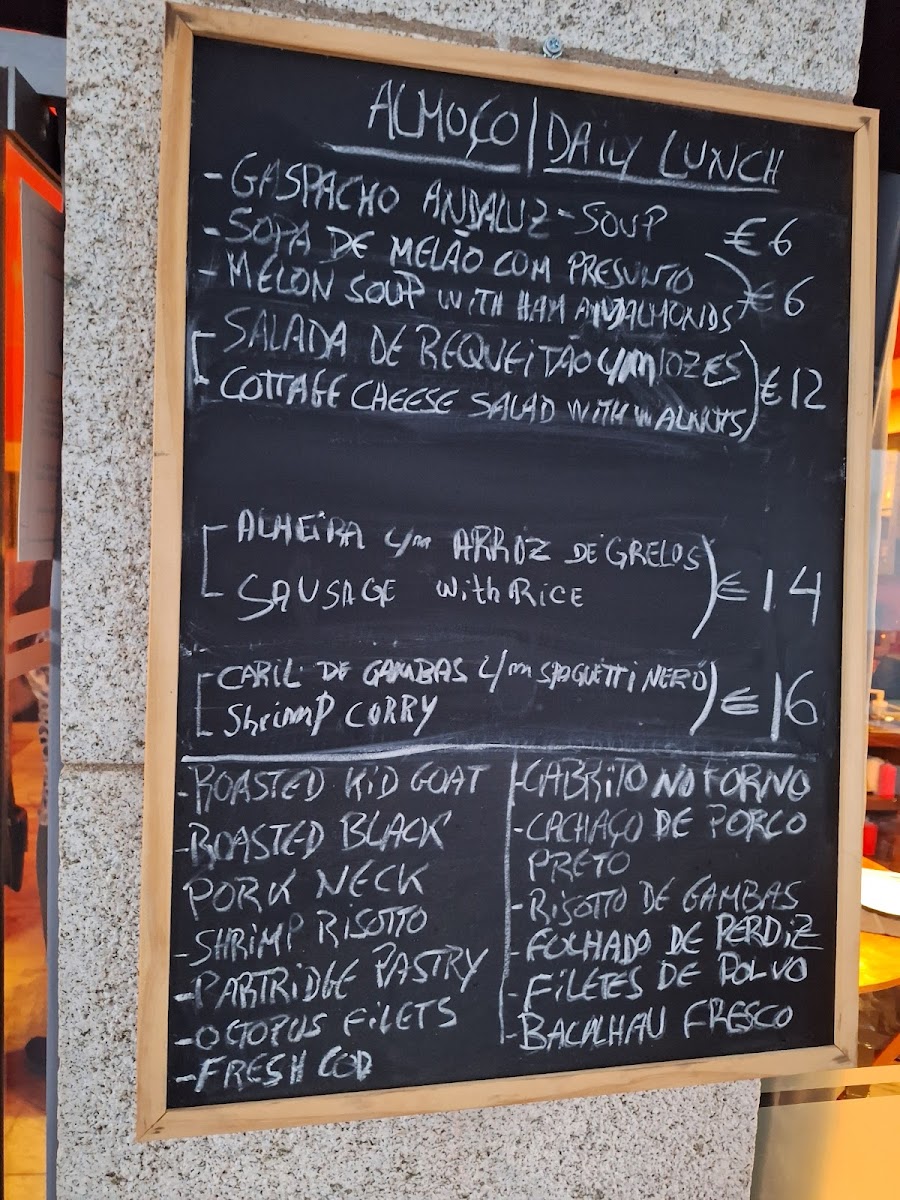 ALMOÇO | DAILY LUNCH
- GASPACHO ANDALUZ - SOUP €6
- SOPA DE MELÃO COM PRESUNTO
- MELON SOUP WITH HAM AND ALMONDS €6
SALADA DE REQUEITÃO C/m NOZES
COTTAGE CHEESE SALAD WITH WALNUTS €12
ALHEIRA C/m ARROZ DE GRELOS
SAUSAGE with RICE €14
CARIL DE GAMBAS C/m SPAGUETTI NERO
Shrimp CURRY €16
- ROASTED KID GOAT
- ROASTED BLACK
PORK NECK
- SHRIMP RISOTTO
- PARTRIDGE PASTRY
- OCTOPUS FILETS
- FRESH COD
- CABRITO NO FORNO
- CACHAÇO DE PORCO
PRETO
- RISOTTO DE GAMBAS
- FOLHADO DE PERDIZ
- FILETES DE POLVO
- BACALHAU FRESCO